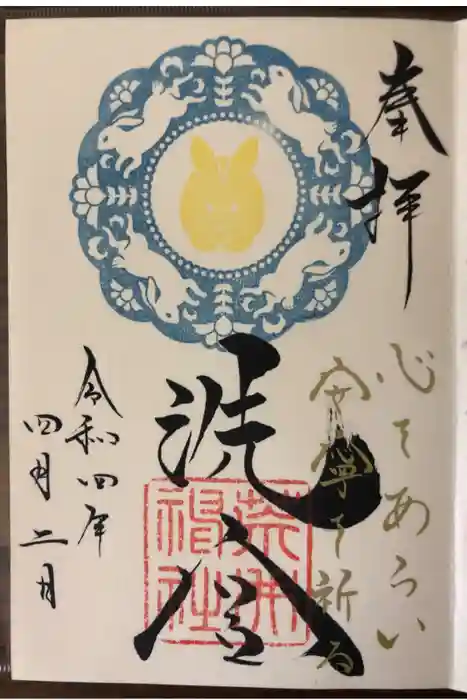 奉拝
心をあらい
安寧を祈る
洗
令和四年
四月二日